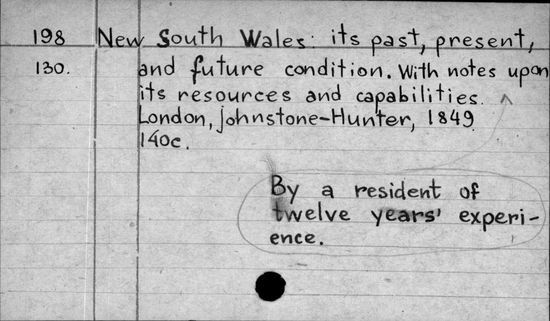 198 New South Wales: its past, present,
130. and future condition. With notes upon
its resources and capabilities. ^
London, Johnstone-Hunter, 1849
140c.
By a resident of
twelve years' experi-
ence.